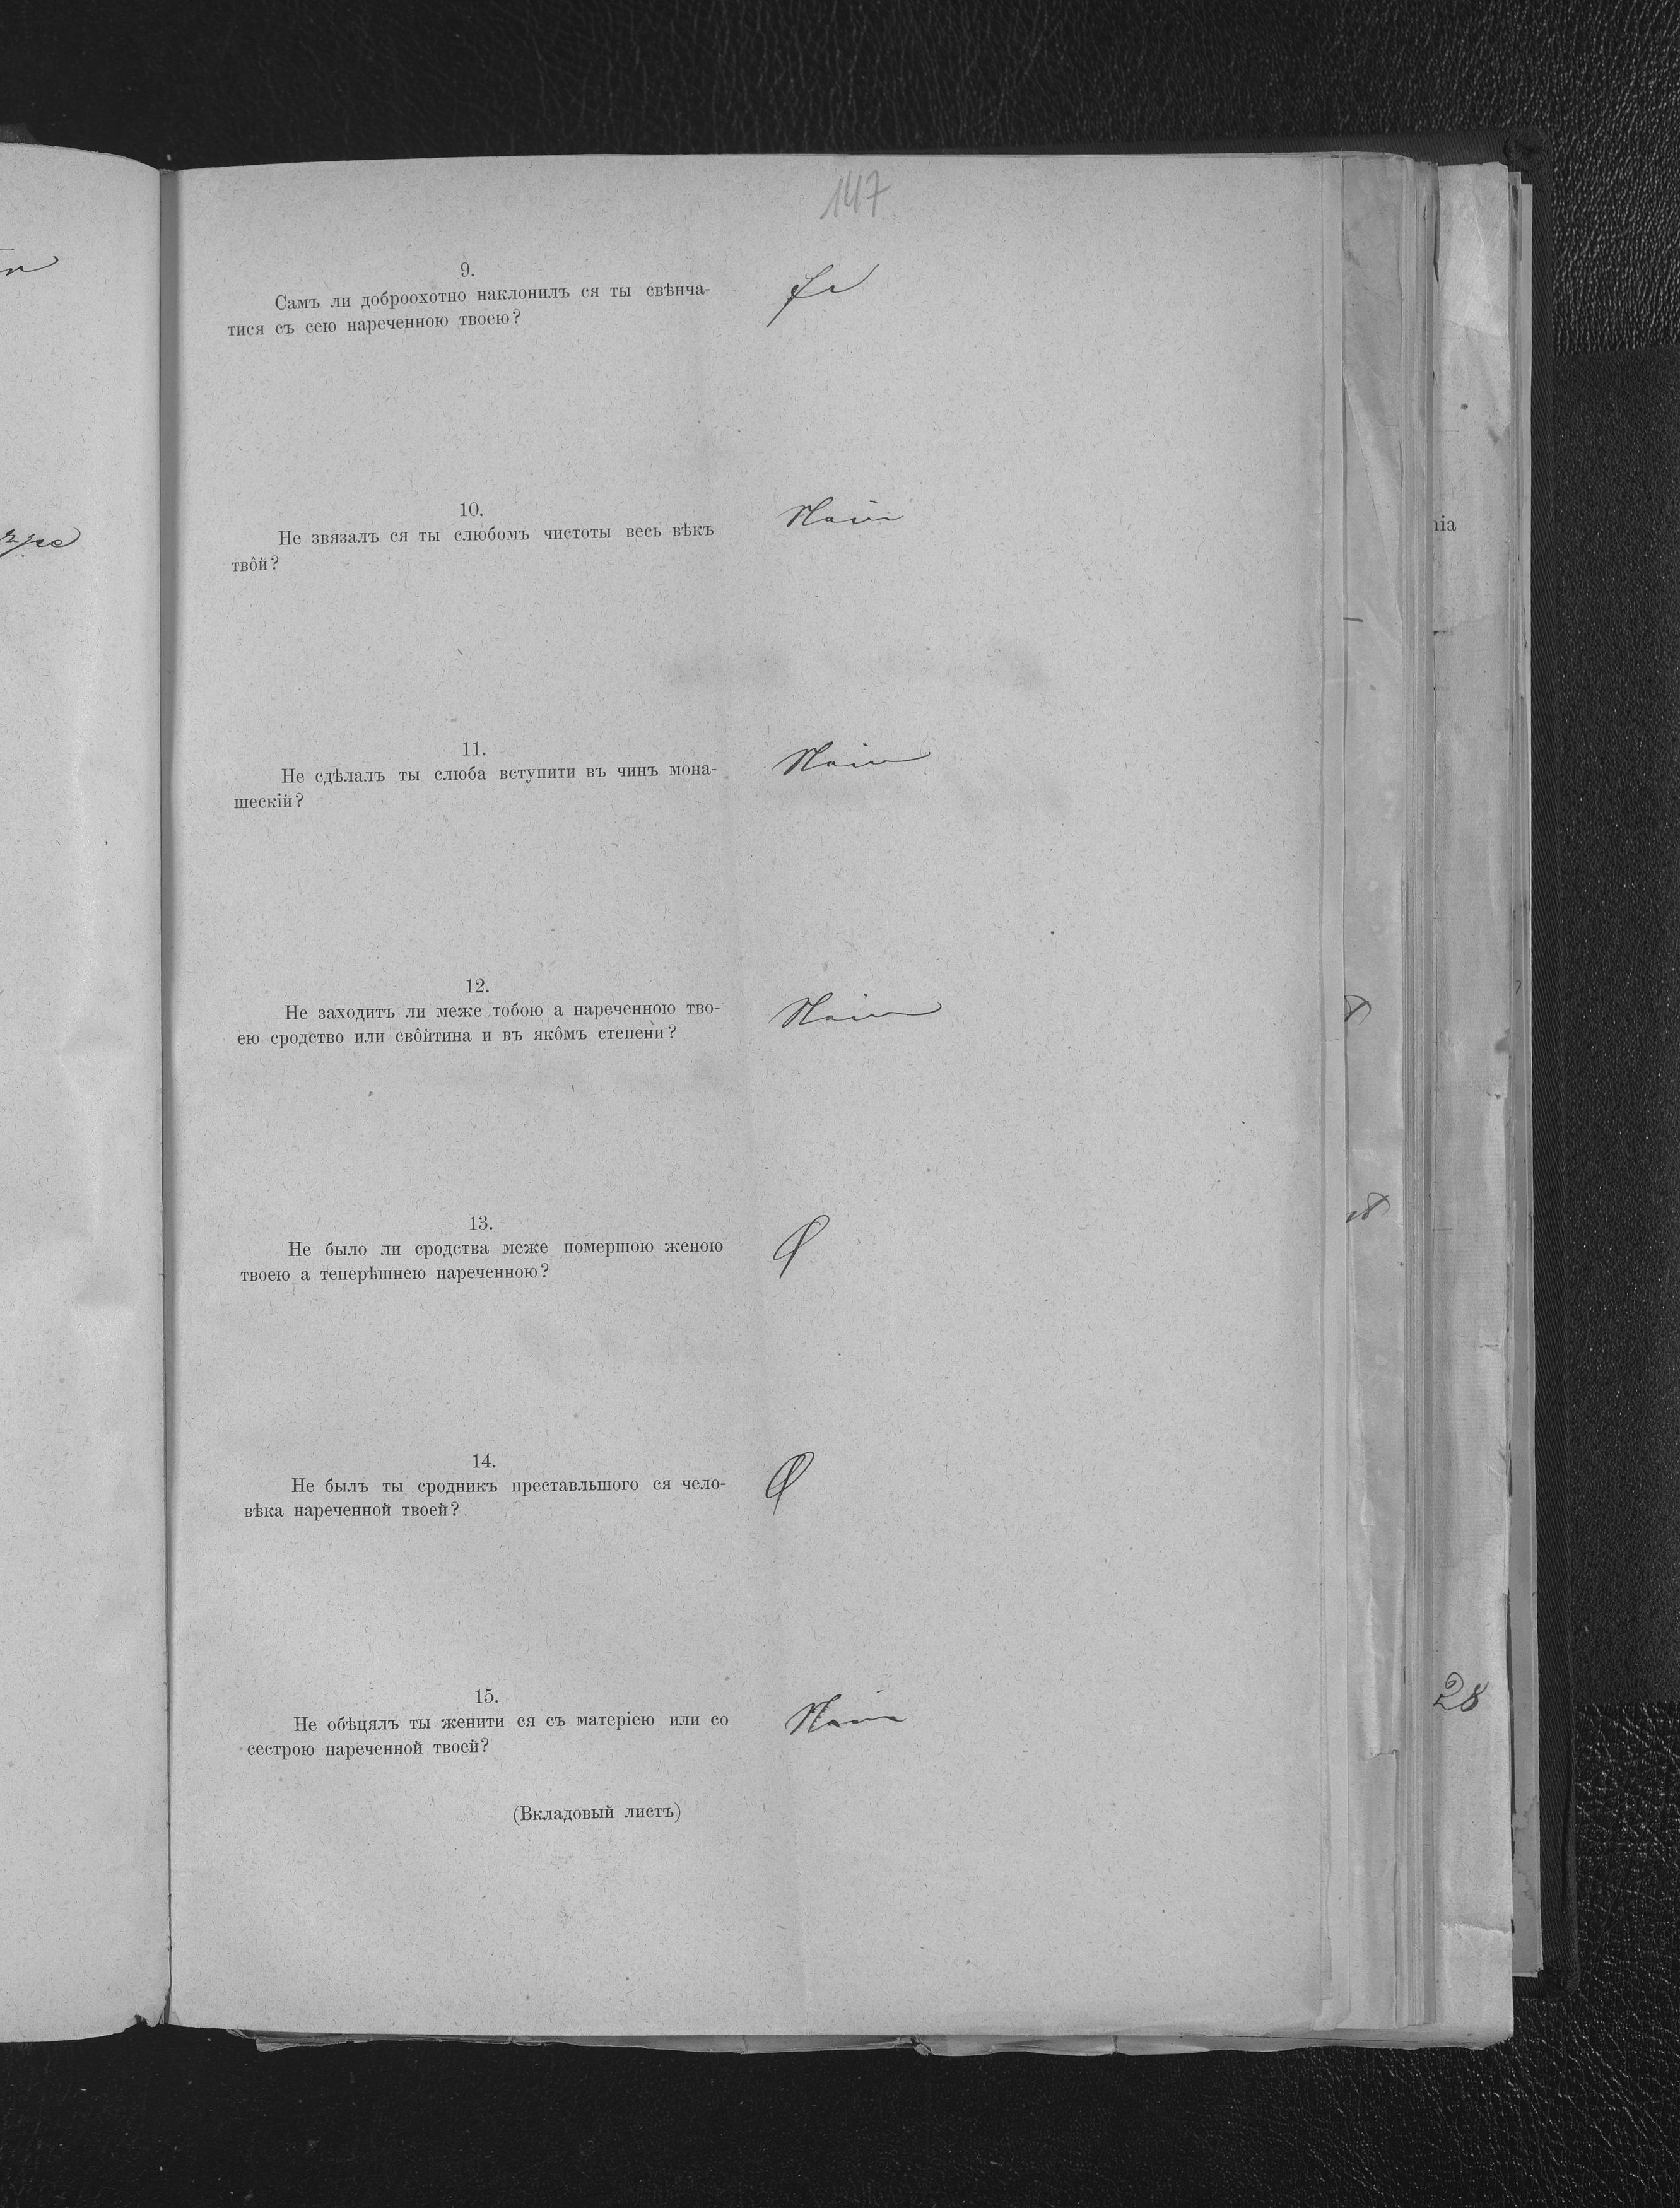 147
9.
Самъ ли доброохотно наклонилъ ся ты свѣнча-
тися съ сею нареченною твоею?
Ja
10.
Не звязалъ ся ты слюбомъ чистоты весь вѣкъ
твôй?
Nein
11.
Не сдѣлалъ ты слюба вступити въ чинъ мона-
шескій?
Nein
12.
Не заходитъ ли меже тобою а нареченною тво-
ею сродство или свôйтина и въ якôмъ степени?
Nein
13.
Не было ли сродства меже помершою женою
твоею а теперѣшнею нареченною?
14.
Не былъ ты сродникъ преставльшого ся чело-
вѣка нареченной твоей?
15.
Не обѣцялъ ты женити ся съ матеріею или со
сестрою нареченной твоей?
Nein
(Вкладовый листъ)
28